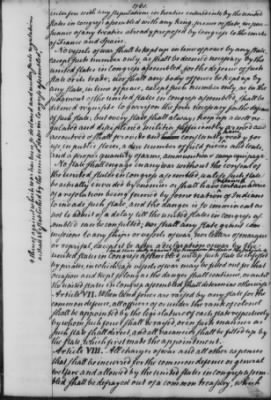 1781.
interfere with any stipulations in treaties entered into by the united
states in congress assembled with any king, prince or state, in pur-
suance of any treaties already proposed by congress to the courts
of France and Spain.
No vessels of war shall be kept up in time of peace by any state,
except such number only, as shall be deemed necessary by the
united states in congress assembled, for the defence of such
state or its trade; nor shall any body of forces be kept up by
any state, in time of peace, except such number only, as in the
judgment of the united states in congress assembled, shall be
deemed requisite to garrison the forts necessary for the defence
of such state; but every state shall always keep up a well re-
gulated and disciplined militia, sufficiently armed and
accoutred, and shall provide and constantly have ready for
use, in public stores, a due number of field pieces and tents,
and a proper quantity of arms, ammunition and camp equipage.
No state shall engage in any war without the consent of
the united states in congress assembled, unless such state
be actually invaded by enemies, or shall have received certain advice
of a resolution being formed by some nation of Indians
to invade such state, and the danger is so imminent as
not to admit of a delay till the united states in congress as-
sembled can be consulted; nor shall any state grant com-
missions to any ships or vessels of war, nor letters of marque
or reprisal, except it be after a declaration of war by the
united states in congress assembled,
unless such state be infested
by pirates, in which case vessels of war may be fitted out for that
occasion and kept so long as the danger shall continue, or until
the united states in congress assembled shall determine otherwise.
Article VII. When land forces are raised by any state for the
common defence, all officers of or under the rank of colonel
shall be appointed by the legislature of each state respectively
by whom such forces shall be raised, or in such manner as
such state shall direct, and all vacancies shall be filled up by
the state which first made the appointment.
Article VIII. All charges of war and all other expences
that shall be incurred for the common defence or general
welfare and allowed by the united states in congress assem-
bled, shall be defrayed out of a common treasury, which